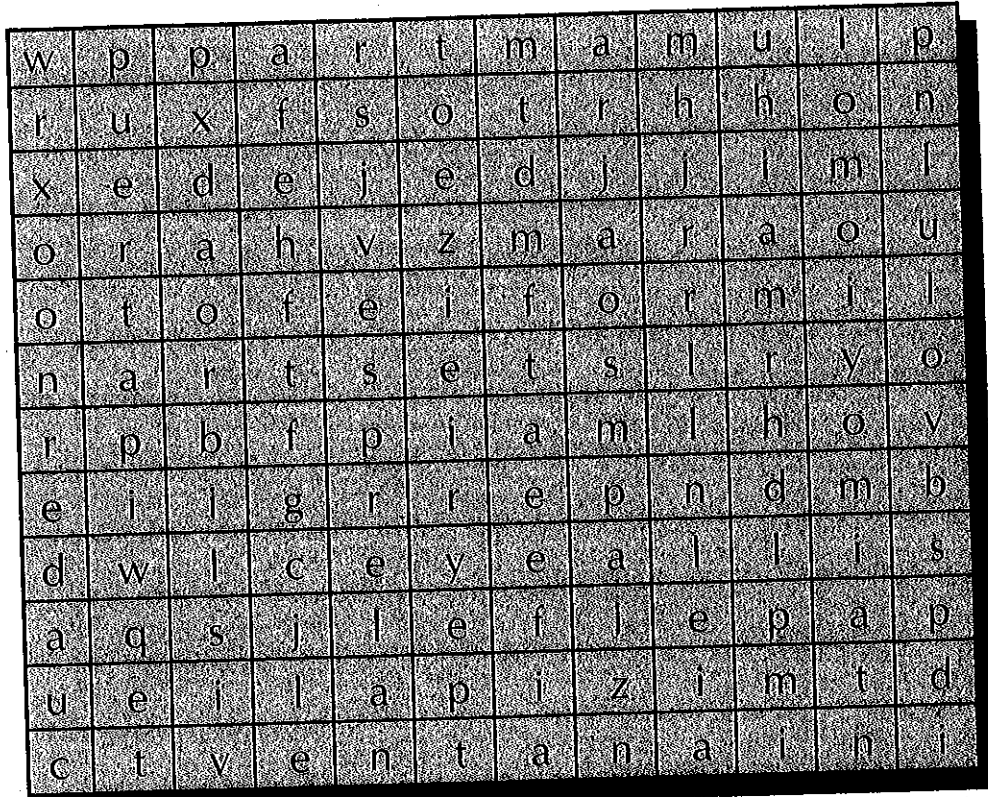 w p p a r t m a m u l p
r u x f s o t r h h o n
x e d e j e d j j i m l
o r a h v z m a r a o u
o t o f e i f o r m i l
n a r t s e t s l r y o
r p b f p i a m l h o v
e i j g r r e p n d m b
d w l c e y e a l l i s
a q s j l e f l e p a p
u e i l a p i z i m t d
c t v e n t a n a i n i